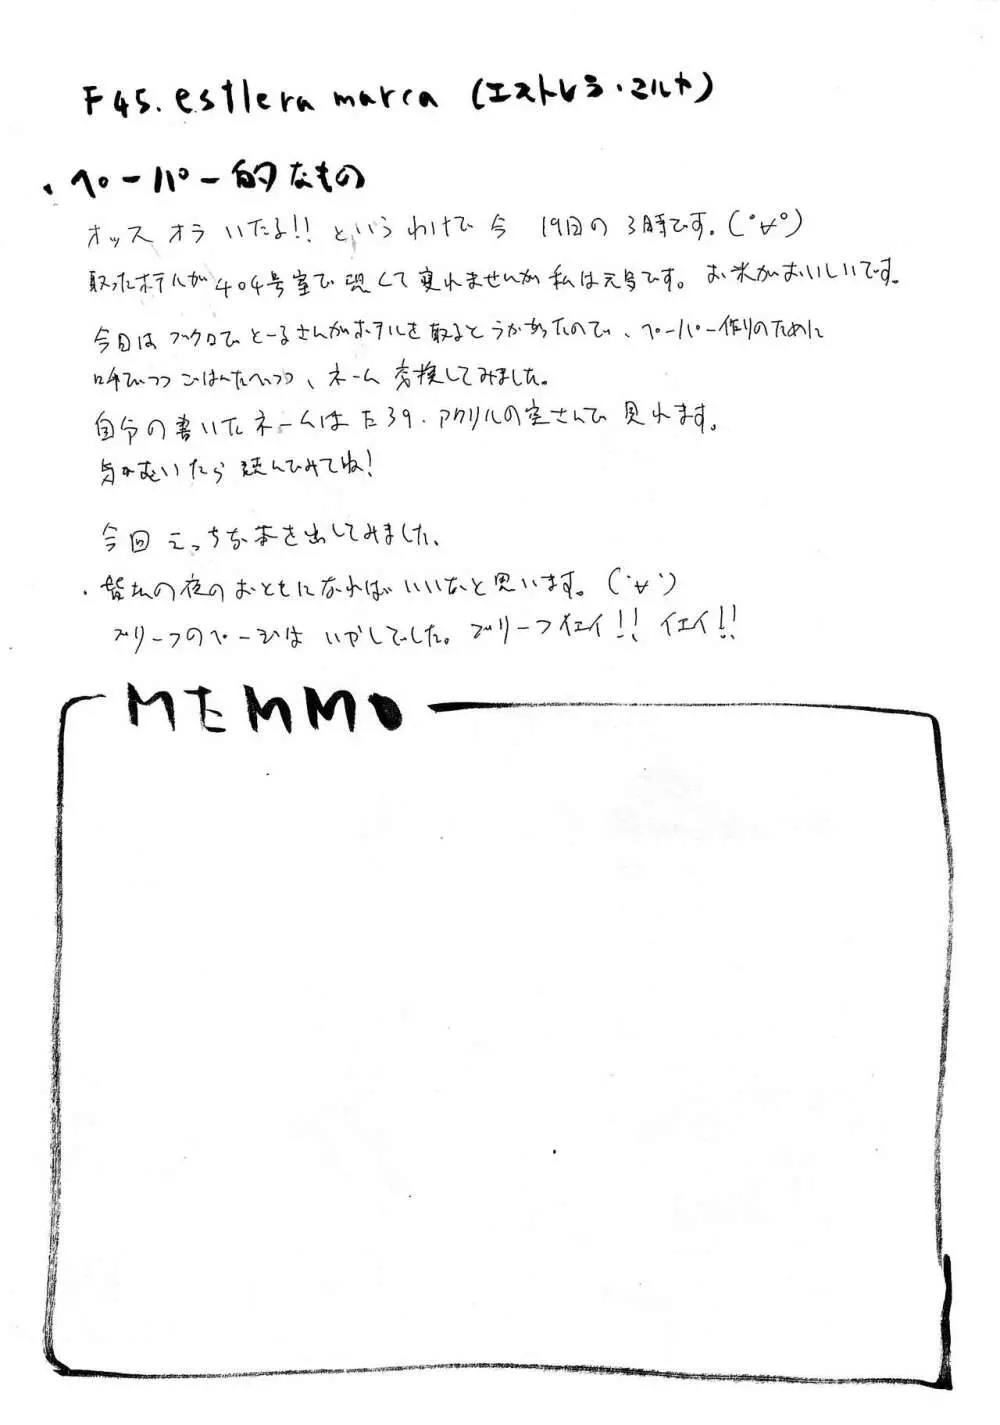 F45. estlera marca (エストレラ・マルカ)
・ペーパー的なもの
オッス オラ いたる!! というわけで 今 19日の 3時です。(゜∀゜)
取ったホテルが404号室で 恐くて寝れませんが 私は元気です。 お米がおいしいです。
今日は ブクロで とーるさんがホテルを取るとうかがったので、ペーパー作りのために
呼びつつ ごはんたべつつ、ネーム 交換してみました。
自分の書いたネームは た39・アクリルの空さんで 見れます。
気がむいたら 読んでみてね!
今回 えっちな本を出してみました。
・皆さんの夜のおともになればいいなと思います。(・∀・)
ブリーフのページは いかしてでした。ブリーフイェイ!! イェイ!!
MEMMO